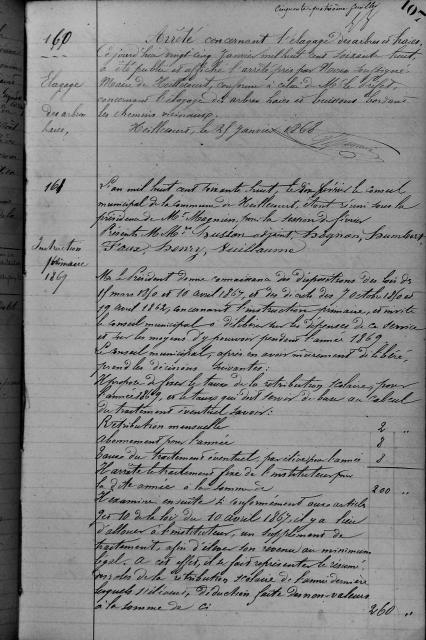 Cinquante quatrième feuillet
107
160
Arrêté concernant l'élagage des arbres et haies,
Cejourd'hui vingt cinq Janvier mil huit cent soixante huit,
a été publié et affiché l'arrêté pris par Nous soussigné
Elagage
Maire de Heillecourt, conforme à celui de Mr le Préfet,
concernant l'élagage des arbres, haies et buissons bordant
Des arbres
les chemins vicinaux.
haies,
Heillecourt, le 25 Janvier 1868
161
L'an mil huit cent soixante huit, le février le conseil
municipal de la commune de Heillecourt, étant réuni sous la
présidence de Mr Magnien, pour la session de février
Présents M Mrs Husson adjoint, Humbert,
Henry, Vuillaume
Instruction
primaire
1869
Mr le Président donne connaissance des dispositions des lois des
15 mars 1850 et 10 avril 1867, et des décrets des 7 octobre 1850 et
19 avril 1862, concernant l'instruction primaire, et invite
le conseil municipal à délibérer sur les dépenses de ce service
et sur les moyens d'y pourvoir pendant l'année 1869
Le conseil municipal, après en avoir mûrement délibéré,
prend les décisions suivantes:
Il propose de fixer le taux de la rétribution scolaire, pour
l'année 1869, et le taux qui doit servir de base au calcul
du traitement éventuel savoir:
Rétribution mensuelle 2 "
Abonnement pour l'année 8
Taux du traitement éventuel, par élève, pour l'année 8
Il arrête le traitement fixe de l'instituteur pour
la dite année à la somme de 200 "
Il examine ensuite si conformément aux articles
9 et 10 de la loi du 10 avril 1867, il y a lieu
d'allouer à l'instituteur, un supplément de
traitement, afin d'élever son revenu au minimum
légal. A cet effet, il se fait représenter le résumé
des rôles de la rétribution scolaire de l'année dernière
lesquels s'élèvent, déduction faite des non-valeurs
à la somme de ci 260 "